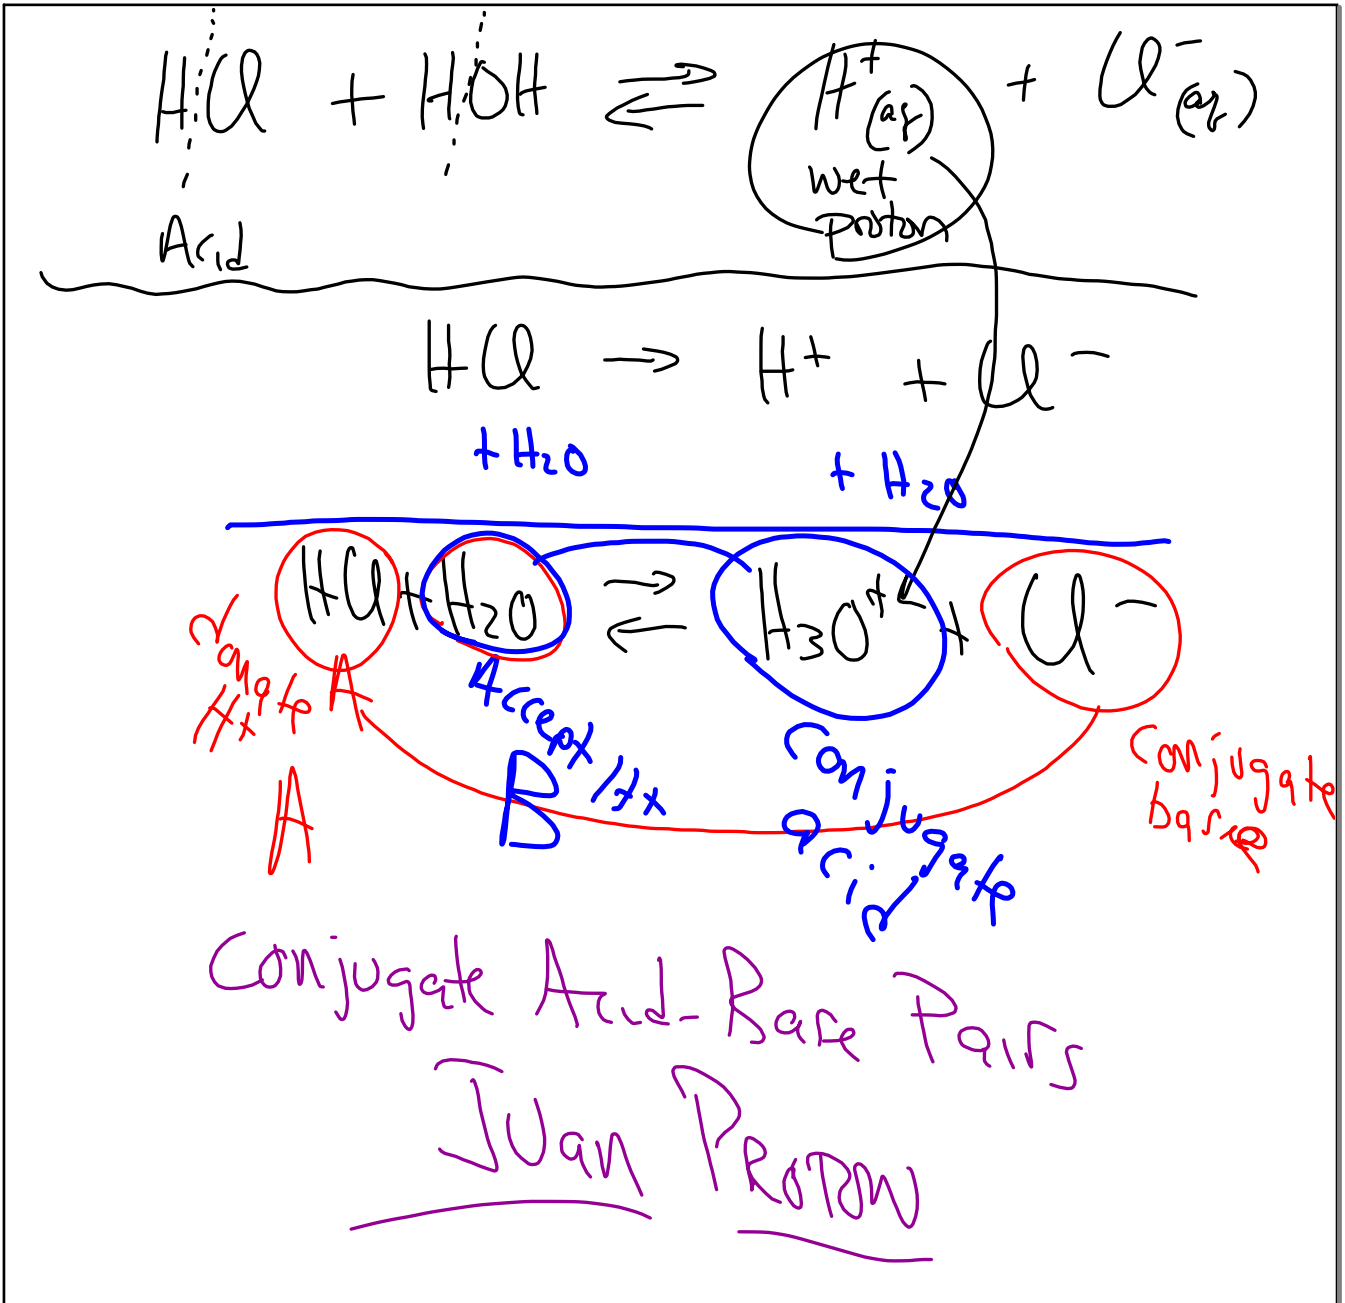 HCl + HOH ⇌ H⁺(aq) + Cl⁻(aq)
wet
proton
Acid
HCl → H⁺ + Cl⁻
+ H₂O + H₂O
HCl + H₂O ⇌ H₃O⁺ + Cl⁻
A Accept H+
B
Conjugate
acid
Conjugate
base
A
Conjugate Acid-Base Pairs
Juan PROTON